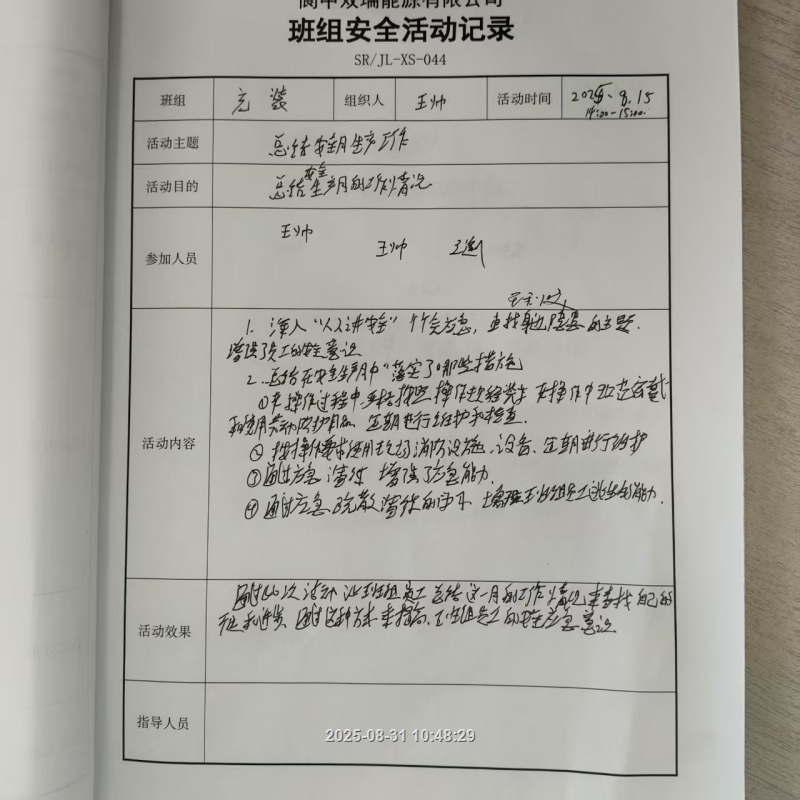 阆中双瑞能源有限公司
班组安全活动记录
SR/JL-XS-044
班组 充装 组织人 王帅 活动时间 2025.8.15
14:00-15:00
活动主题 总结安全月生产工作
活动目的 总结安全生产月的工作情况
王帅
参加人员 王帅
1. 深入“人人讲安全”个个会应急,查找身边隐患的主题.
增强了员工的安全意识
2. 总结在安全生产月中“落实了”哪些措施
①在操作过程中严格按照操作规程 在操作中 穿戴
和使用劳动防护用品 定期进行维护和检查.
②按操作要求使用现场消防设施、设备、定期进行维护
③通过应急演练 增强了应急能力.
④通过应急疏散演练的 班组员工逃生的能力.
活动内容
通过此次活动 让班组员工总结这一月的工作情况来查找自己的
通过这种方式来提高 班组员工的安全应急意识
活动效果
指导人员
2025-08-31 10:48:29